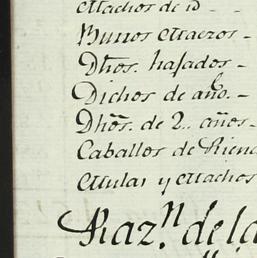 Machos de id -
Burros Maeros -
Dhos. hasados -
Dichos de año. -
Dhõs. de 2.. años -
Caballos de Rien
Mulas y Machos
Raz.n de la